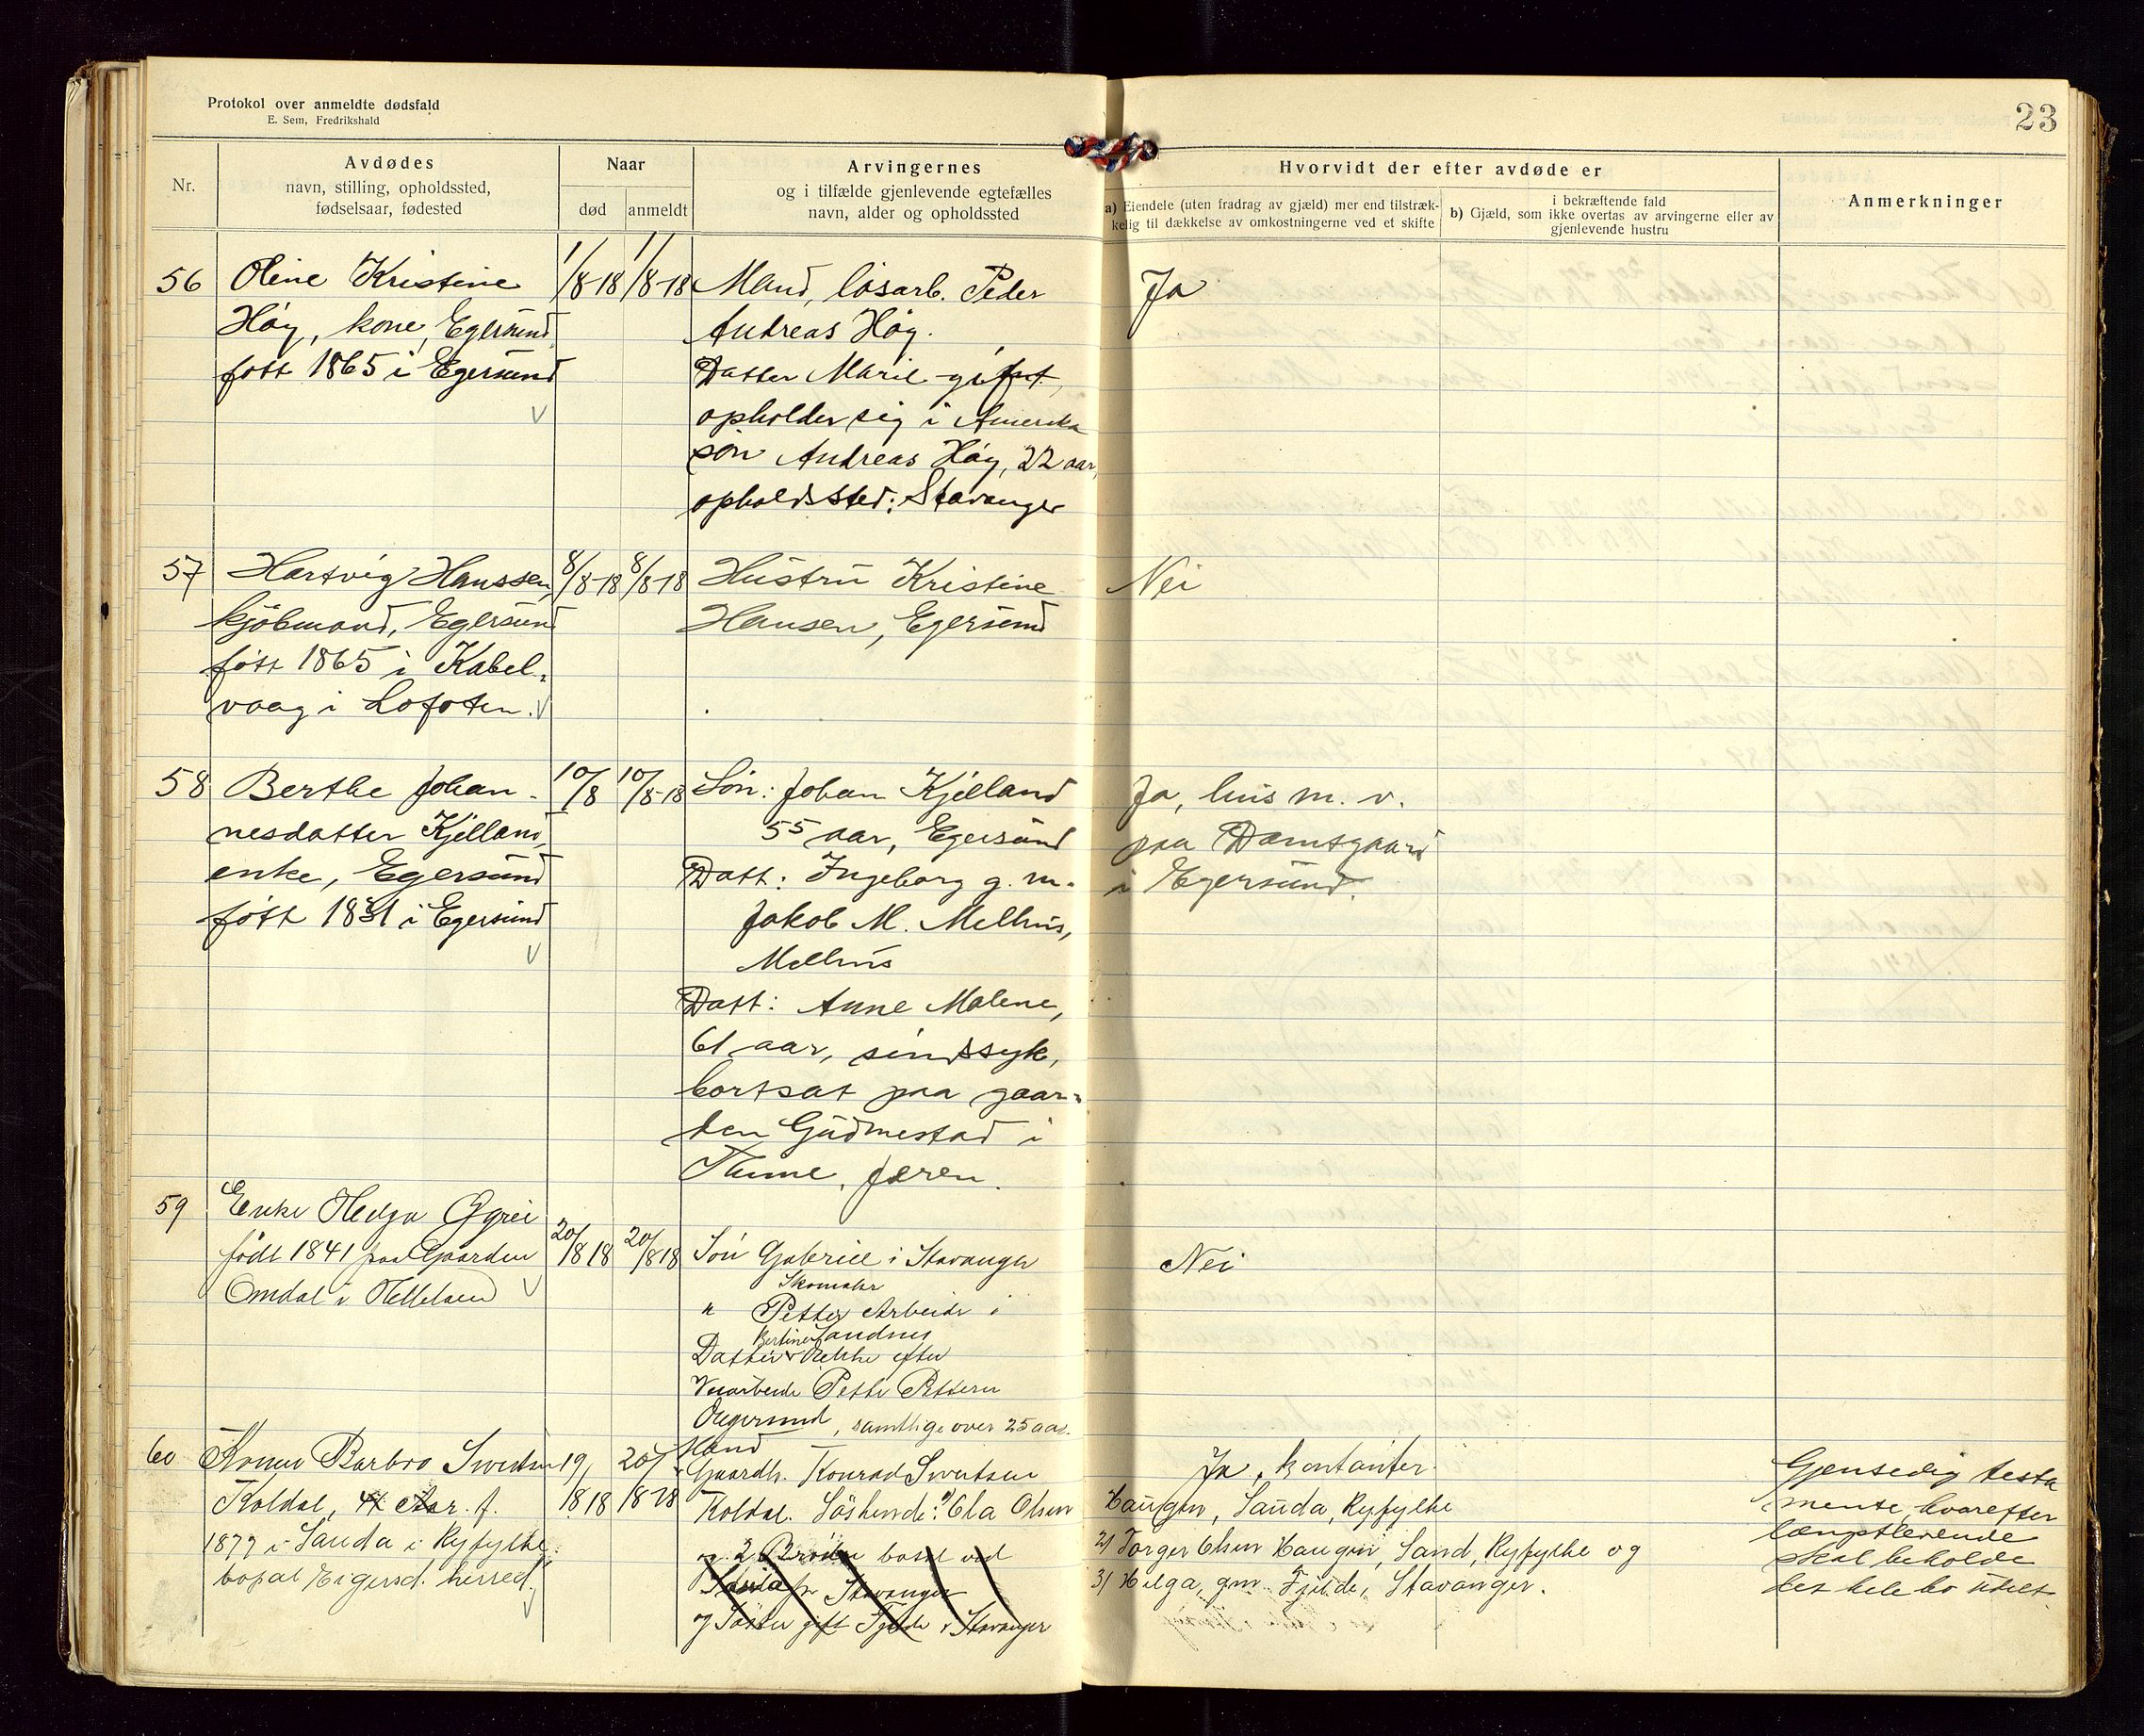 Protokol over anmeldte dødsfald
E. Sem, Fredrikshald
23
Nr.
Avdødes
navn, stilling, opholdssted,
fødselsaar, fødested
Naar
død
anmeldt
Arvingernes
og i tilfælde gjenlevende egtefælles
navn, alder og opholdssted
Hvorvidt der efter avdøde er
a) Eiendele (uten fradrag av gjæld) mer end tilstræk-
kelig til dækkelse av omkostningerne ved et skifte
i bekræftende fald
b) Gjæld, som ikke overtas av arvingerne eller av
gjenlevende hustru
Anmerkninger
56
Oline Kristine
Høy, kone, Egersund
født 1865 i Egersund
1/8-18
1/8-18
Mand, løsarb. Peder
Andreas Høy.
Datter Marie gift,
opholder sig i Amerika
søn Andreas Høy, 22 aar,
opholdssted: Stavanger
Ja
57
Hartvig Hanssen,
kjøbmand, Egersund
født 1865 i Kabel-
vaag i Lofoten.
8/8-18
8/8-18
Hustru Kristine
Hansen, Egersund
Nei
58
Berthe Johan-
nesdatter Kjelland,
enke, Egersund
født 1831 i Egersund
10/8
10/8-18
Søn: Johan Kjelland
55 aar, Egersund
Datt: Ingeborg g. m.
Jakob M. Mellhus,
Mellhus
Datt: Anne Malene,
61 aar, sindssyk,
bortsat paa gaar-
den Gudmestad i
Thime, Jæren.
Ja, hus m. v.
paa Damsgaard
i Egersund.
59
Enke Helga
født 1841 paa Gaarden
Omdal i Helleland
20/8 18
20/8 18
Søn Gabriel i Stavanger
Skomaker
" Petter Arbeider i
Sandnes
Bertine
Datter Enke efter
Petter Pettersen
Egersund, samtlige over 25 aar.
Nei
60
Konen Barbro Sivertsen
Koldal, 41 Aar. f.
1877 i Sauda i Ryfylke.
bopæl Eigersd. herred.
19/8 18
20/8 18
Mand
Gaardb. Konrad Sivertsen
Koldal. Søskende: 1) Ola Olsen
og 2 Brødre bosat ved
Sauda pr Stavanger
og Søster gift Fjelde i Stavanger
Ja, kontanter.
Haugen, Sauda, Ryfylke
2) Torger Olsen Haugen, Sand, Ryfylke og
3) Helga, gm. Fjelde, Stavanger.
Gjensidig testa
mente, hvorefter
længstlevende
skal beholde
det hele bo udelt.